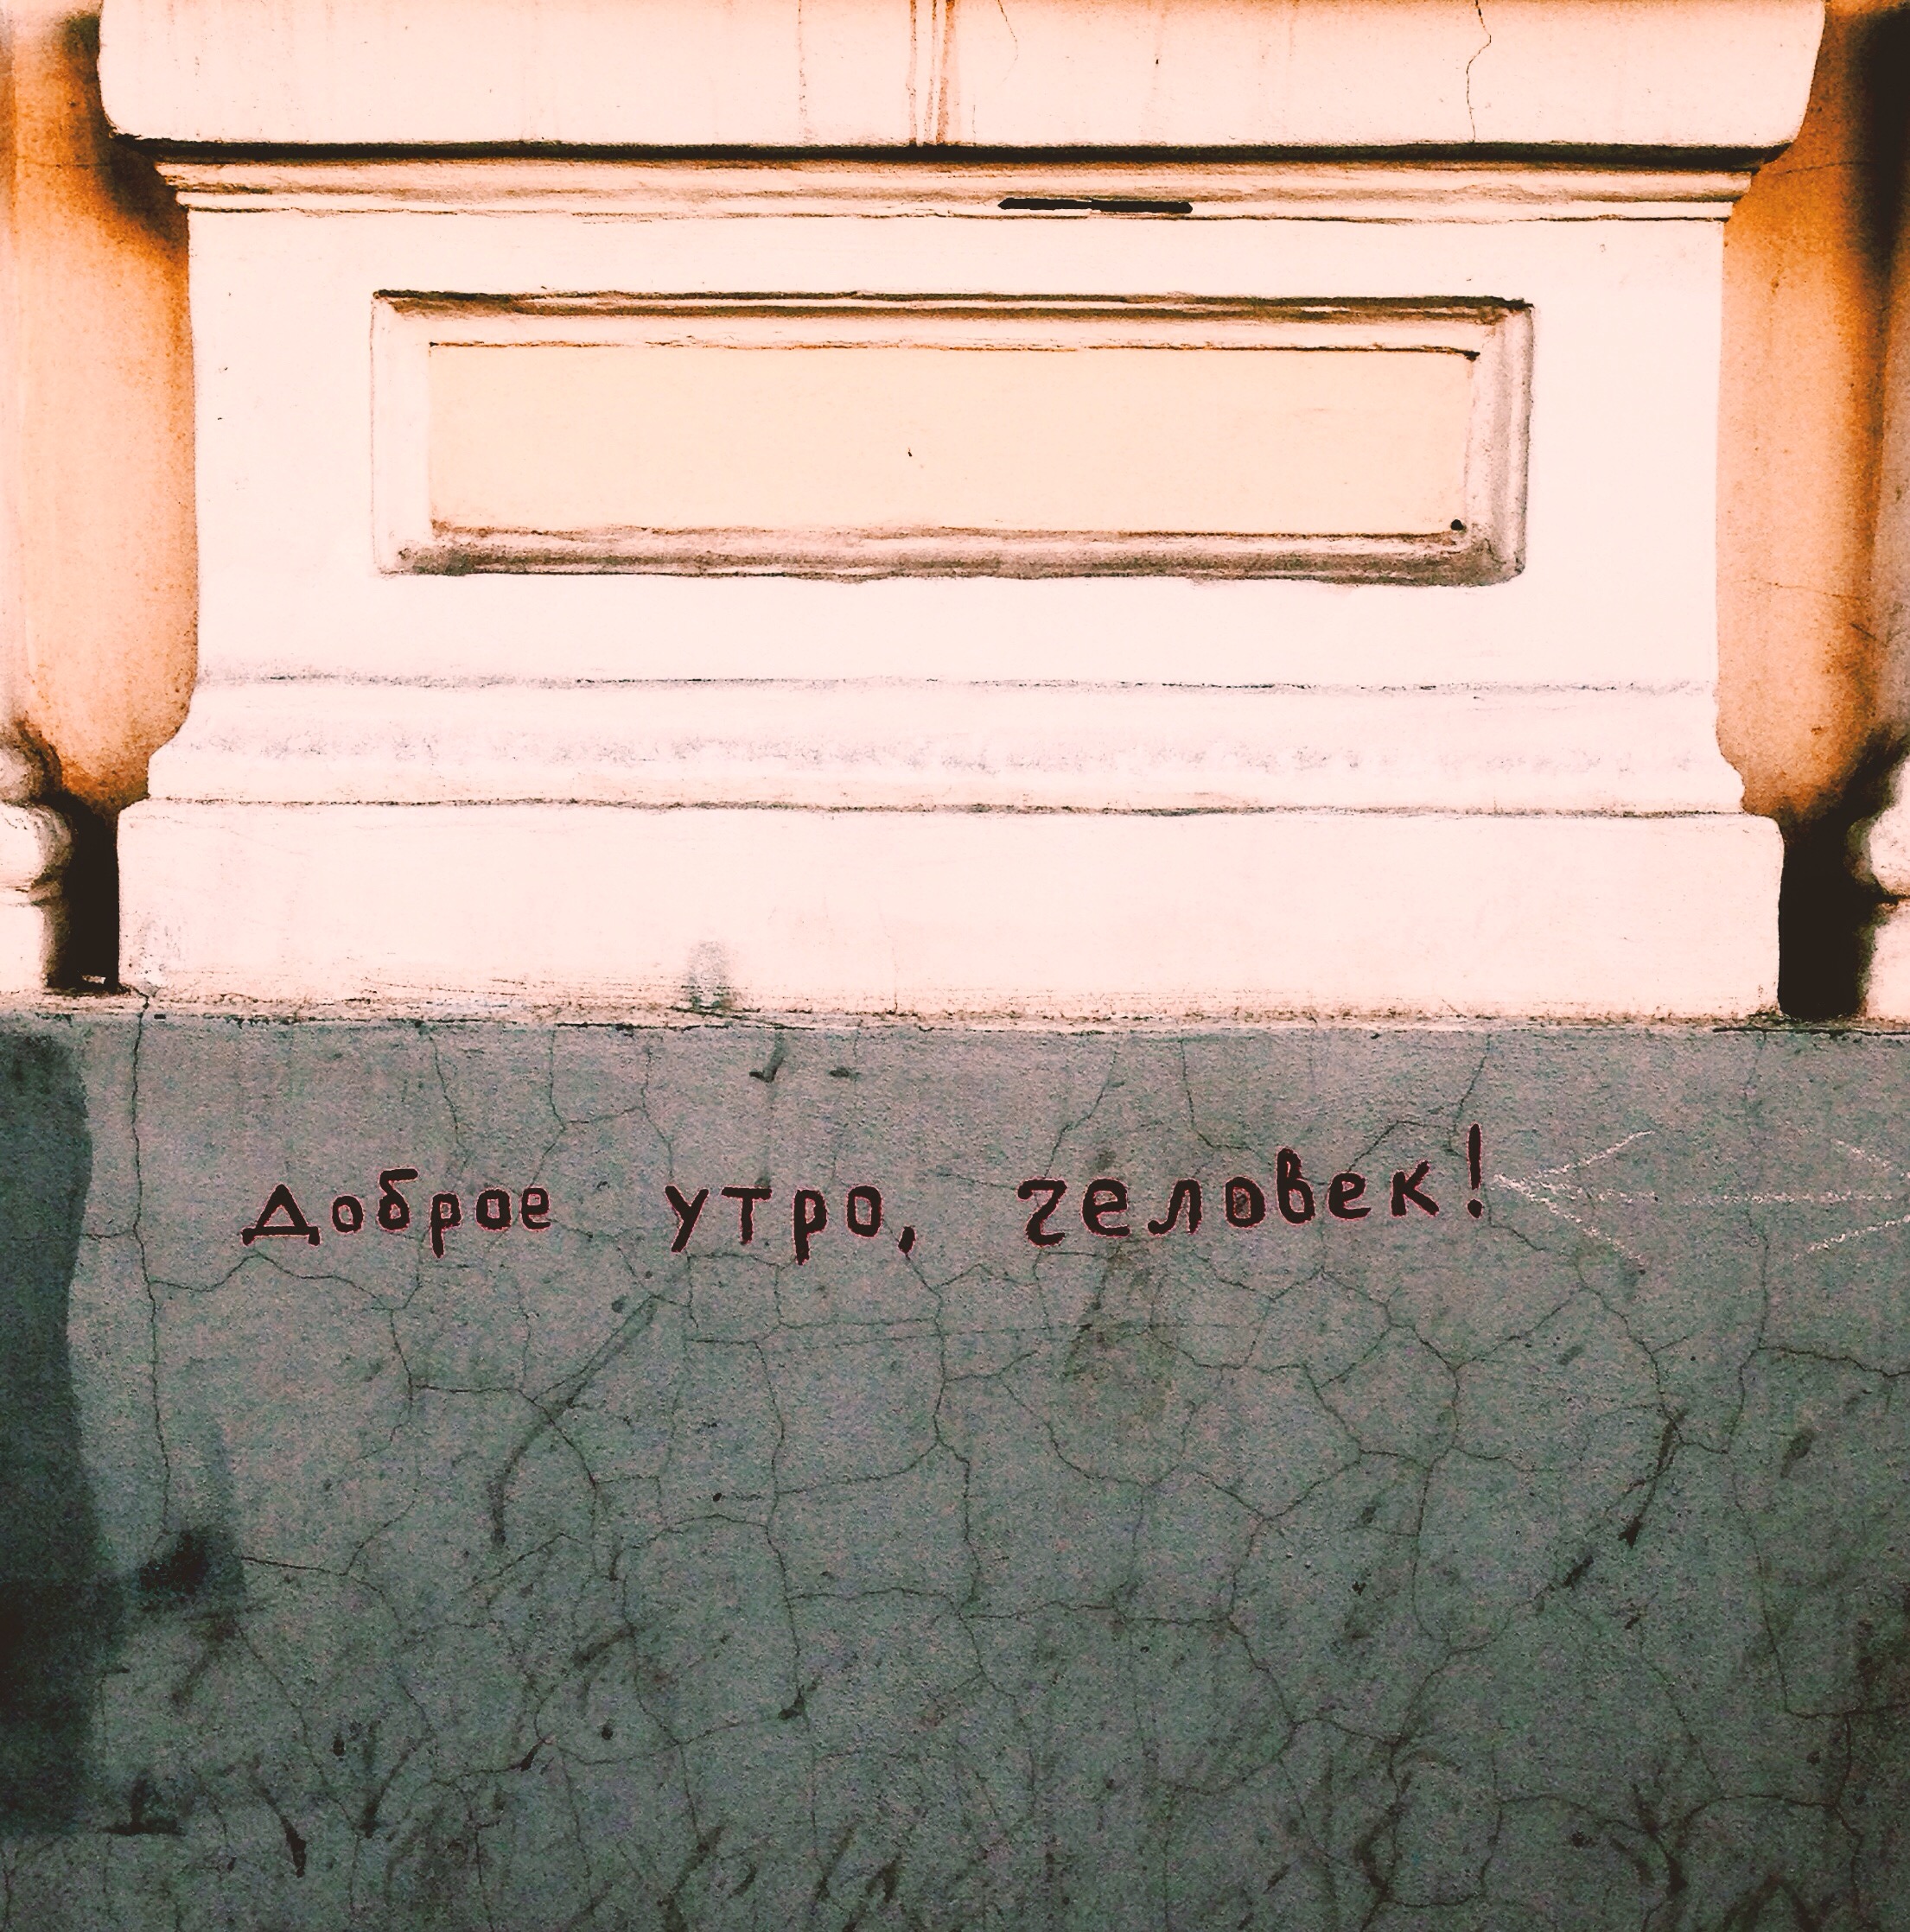 Доброе утро, человек!